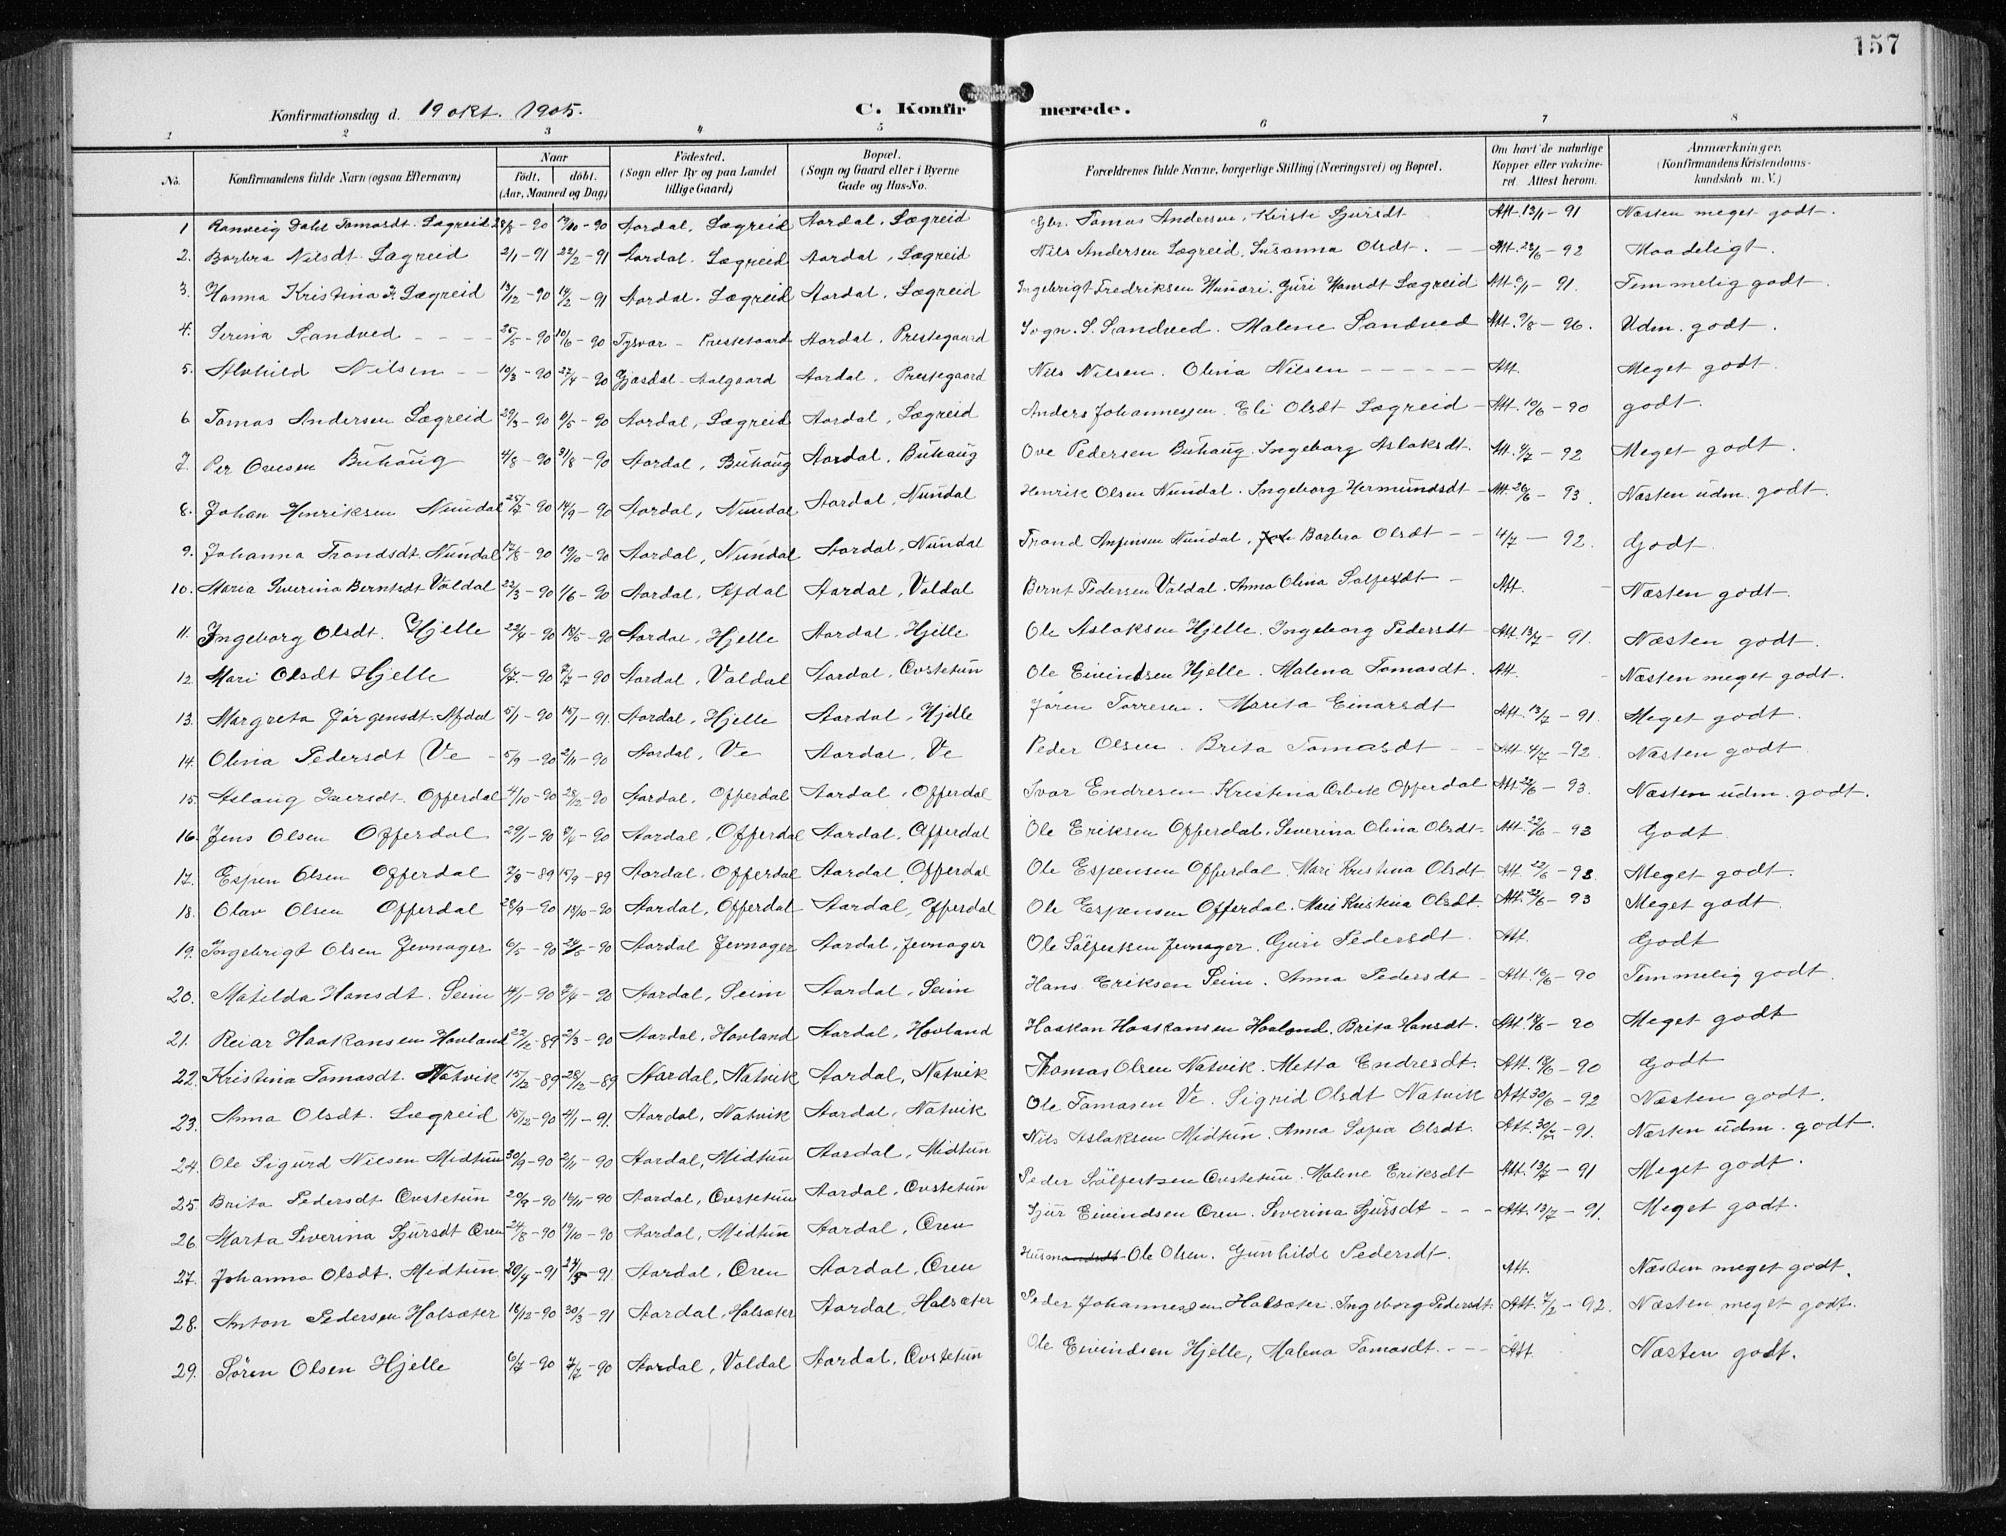 157
Konfirmationsdag d. 19 okt. 1905. C. Konfirmerede.
1 2 3 4 5 6 7 8
No. Konfirmandens fulde Navn (ogsaa Efternavn) Naar födt. döbt. (Aar, Maaned og Dag) Födested. (Sogn eller By og paa Landet tillige Gaard) Bopæl. (Sogn og Gaard eller i Byerne Gade og Hus-No. Forældrenes fulde Navne, borgerlige Stilling (Næringsvei) og Bopæl. Om havt de naturlige Kopper eller vaccineret. Attest herom. Anmærkninger. (Konfirmandens Kristendomskundskab m. V.)
1 Ranveig Dahl Tomasdt. Lægreid 28/8-90 19/10-90 Aardal, Lægreid Aardal, Lægreid Gbr. Tomas Andersen, Kirsti Sjursdt Att. 13/1-91 Næsten meget godt.
2. Barbra Nilsdt. Lægreid 2/1-91 22/2-91 Aardal. Lægreid Aardal, Lægreid Nils Andersen Lægreid, Susanna Olsdt. Att. 23/6-92 Maadeligt.
3. Hanna Kristina Lægreid 13/12-90 14/2-91 Aardal. Lægreid Aardal, Lægreid Ingebrigt Fredriksen Guri Hansdt Lægreid Att. 91. Temmelig godt.
4. Serina Sandved 25/5-90 10/6-90 Tysvær - Prestegaard Aardal, Prestegaard Sogn. S. Sandved. Malene Sandved Att. 9/8-96. Udm. godt.
5. Alvhild Nilsen 10/3-90 27/4-90 Gjæsdal - Aalgaard Aardal, Prestegaard Nils Nilsen. Olina Nilsen Att. Meget godt.
6 Tomas Andersen Lægreid 29/3-90 /5-90 Aardal, Lægreid Aardal, Lægreid Anders Johannessen. Eli Olsdt Lægreid Att. 10/6-90 godt.
7. Per Ovesen Buhaug 4/8-90 31/8-90 Aardal, Buhaug Aardal, Buhaug Ove Pedersen Buhaug. Ingeborg Aslaksdt. Att. 4/7-92 Meget godt.
8. Johan Henriksen Nundal 25/7-90 14/9-90 Aardal, Nundal Aardal, Nundal Henrik Olsen Nundal. Ingeborg Hermundsdt Att. 26/6-93. Næsten udm. godt.
9. Johanna Trondsdt. Nundal 17/8-90 19/10-90 Aardal, Nundal Aardal, Nundal Trond Nundal, Barbra Olsdt 4/7-92. Godt.
10. Maria Severina Berntsdt Valdal 22/3-90 /6-90 Aardal, Afdal Aardal, Valdal Bernt Pedersen Valdal. Anna Olina Salfestdt Att. Næsten godt.
11. Ingeborg Olsdt. Hjelle 22/4-90 18/5-90 Aardal, Hjelle Aardal, Hjelle Ole Aslaksen Hjelle. Ingeborg Pedersdt Att. 13/7-91. Næsten godt.
12 Mari Olsdt Hjelle 6/7-90 7/7-90 Aardal, Valdal Aardal, Ovstetun Ole Eivindsen Hjelle. Malena Tomasdt. Att. Næsten meget godt.
13. Margreta Jörgensdt. Afdal 5/1-90 15/1-91. Aardal, Hjelle Aardal, Hjelle Jören Torresen. Marita Einarsdt Att. 13/7-91. Meget godt.
14. Olina Pedersdt Ve 5/9-90 2/11-90 Aardal, Ve Aardal, Ve Peder Olsen. Brita Tomasdt Att. 4/7-92 Næsten godt
15. Aslaug Iversdt. Offerdal 4/10-90 28/12-90 Aardal, Offerdal Aardal, Offerdal Ivar Endresen Kristina Orbek Offerdal Att. 22/6-93. Næsten udm. godt.
16. Jens Olsen Offerdal 29/1-90 7/4-90 Aardal, Offerdal Aardal, Offerdal Ole Eriksen Offerdal. Severina Olina Olsdt Att. 22/6-93 Godt
17. Espen Olsen Offerdal 7/8-89 15/9-89 Aardal, Offerdal Aardal, Offerdal Ole Espensen Offerdal. Mari Kristina Olsdt Att. 22/6-93 Meget godt.
18. Olav Olsen Offerdal 28/9-90 13/10-90 Aardal, Offerdal Aardal, Offerdal Ole Espensen Offerdal. Mari Kristina Olsdt. Att. 22/6-93 Meget godt.
19. Ingebrigt Olsen Jevnager 6/5-90 26/5-90 Aardal Jevnager Aardal, Jevnager Ole Sölfestsen Jevnager. Guri Pedersdt Att. Godt
20. Matilda Hansdt. Seim 14/1-90 7/4-90 Aardal, Seim Aardal, Seim Hans Eriksen Seim. Anna Pedersdt Att. 16/6-90 Temmelig godt.
21. Reiar Haakonsen Hovland 22/12-89 2/3-90 Aardal, Hovland Aardal, Hovland Haakon Haakansen Hovland. Brita Hansdt. Att. 18/6-90 Meget godt
22. Kristina Tomasdt. Natvik 15/12-89 28/12-89 Aardal, Natvik Aardal, Natvik Thomas Olsen Natvik. Metta Endresdt. Att. 18/6-90 Godt
23. Anna Olsdt. Lægreid 15/12-90 4/1-91. Aardal, Natvik Aardal, Natvik Ole Tomasen Ve. Sigrid Olsdt Natvik Att. 30/6-92 Næsten godt.
24. Ole Sigurd Nilsen Midtun 30/9-90 2/11-90 Aardal, Midtun Aardal, Midtun Nils Aslaksen Midtun. Anna Sofia Olsdt. Att. -91. Næsten udm. godt.
25. Brita Pedersdt Ovstetun 29/9-90 16/11-90 Aardal, Ovstetun Aardal, Ovstetun Peder Sölfestsen Ovstetun. Malene Eriksdt Att. 13/7-91 Meget godt.
26. Marta Severina Sjursdt Oren 24/8-90 19/10-90 Aardal, Midtun Aardal, Oren Sjur Eivindsen Oren. Severina Sjursdt Att. 13/7-91. Meget godt.
27. Johanna Olsdt. Midtun 20/4-91 -91. Aardal, Oren Aardal, Oren Ole Olsen. Gunhilde Pedersdt. Att. Næsten meget godt.
28. Anton Pedersen Halsæter 16/12-90 30/3-91 Aardal, Halsæter Aardal, Halsæter Peder Johannessen Halsæter. Ingeborg Pedersdt. Att. 7/2-92. Næsten meget godt.
29. Sören Olsen Hjelle 6/7-90 7/7-90 Aardal, Valdal Aardal, Ovstetun Ole Eivindsen Hjelle, Malena Tomasdt. Att. Næsten godt.